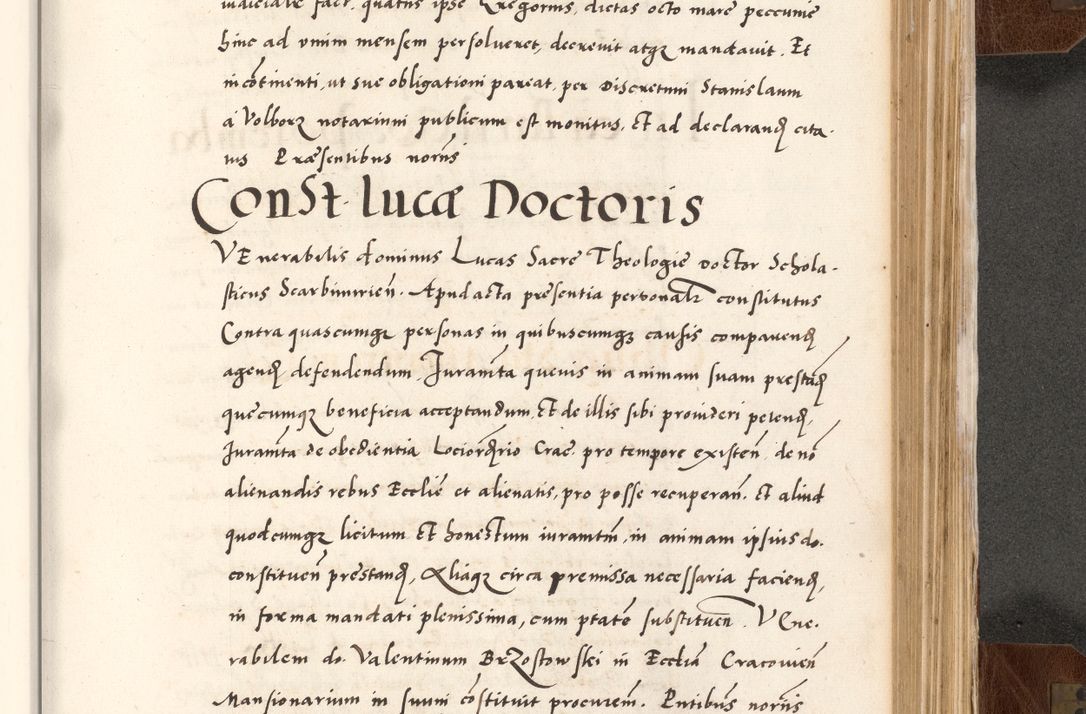 iudicialr fact. quatus ipse Gregorius, dictas octo marc peccunie
hinc ad vnum mensem persolueret, decreuit atqʒ mandauit. Et
in cōtinenti, ut sue obligationi pareat, per Discretum Stanislaum
a Volborz notarium publicum est monitus, Et ad declarand cita-
tus Præsentibus norīs
ConSt. lucæ Doctoris
VEnerabilis dominus Lucas Sacre Theologie doctor Schola-
sticus Scarbimirień. Apud acta presentia personalr constitutus
Contra quascumqʒ personas in quibuscumqʒ causis comparend
agend, defendendum, Juramta queuis in animam suam prestand
quecumqʒ beneficia acceptandum, Et de illis sibi prouideri petend,
Juramta de obedientia Lociordrio Crac. pro tempore existeń, de nō
alienandis rebus Ecclie et alienatis, pro posse recuperań. Et aliud
quodcumqʒ licitum Et honestum iuramtm, in animam ipsius do.
constitueń prestand, Aliaqʒ circa premissa necessaria faciend,
in forma mandati plenissima, cum ptate substitueń. VEne-
rabilem do. Valentinum BrZostowski in Ecclia Cracouień
Mansionarium in suum cōstituit procureṁ. Pntibus norīs